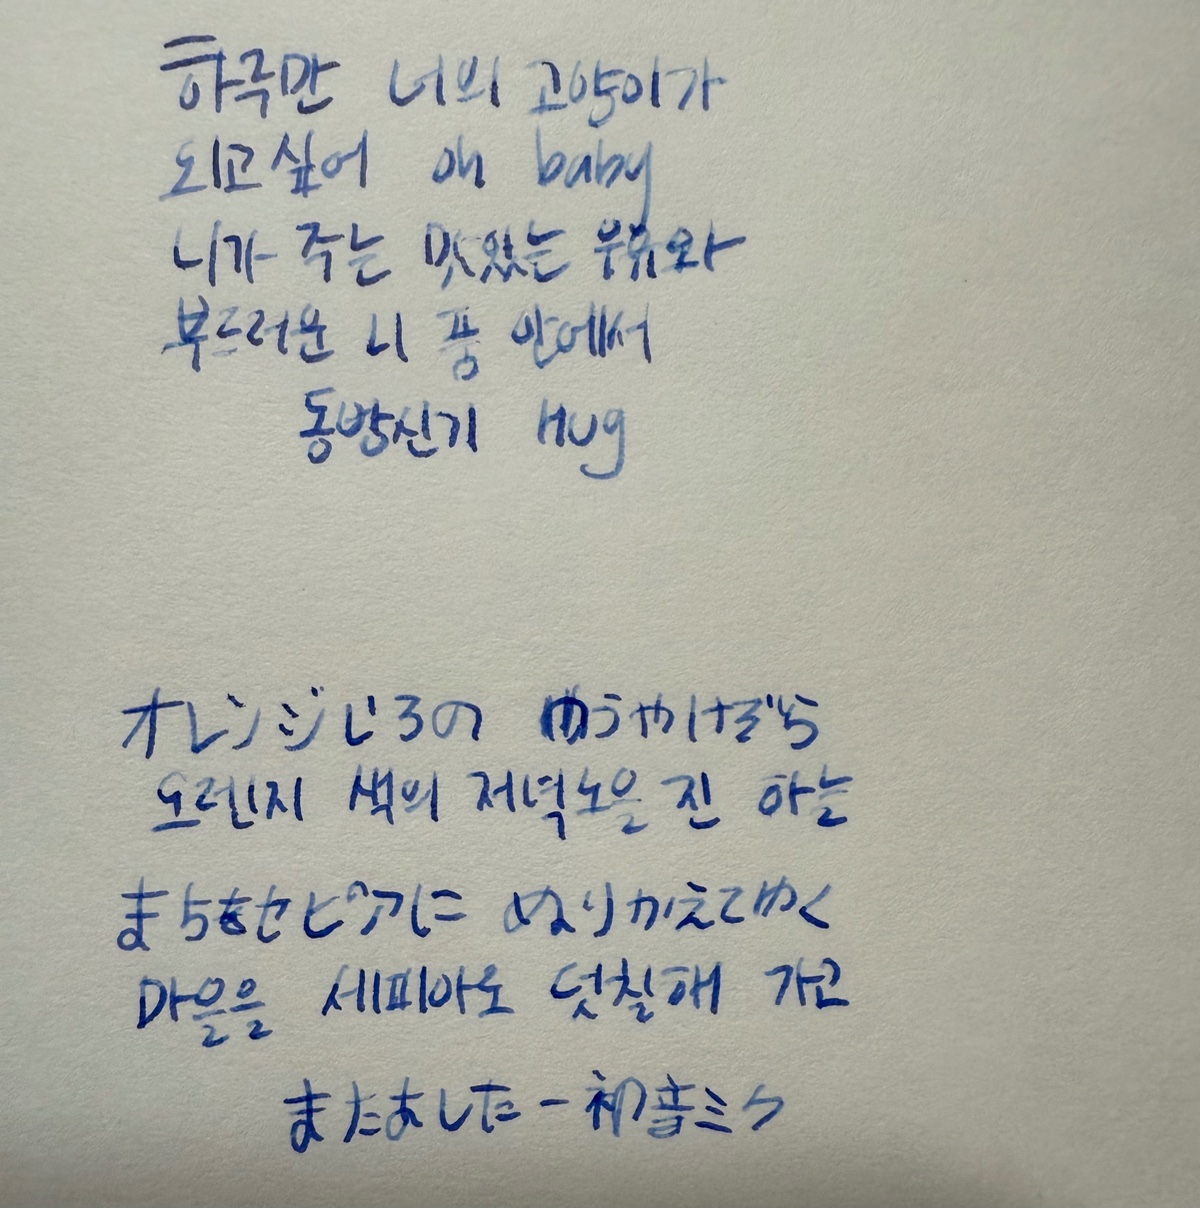 하루만 너의 고양이가
되고 싶어 애 baby
니가 주는 맛있는 우유와
부드러운 니 품 안에서
동방신기 Hug
オレンジじろの ゆうやけぞら
오렌지 색의 저녁노을 진 하늘
まちをセピアに ぬりかえてゆく
마을을 세피아로 덧칠해 가고
またあした - 初音ミク